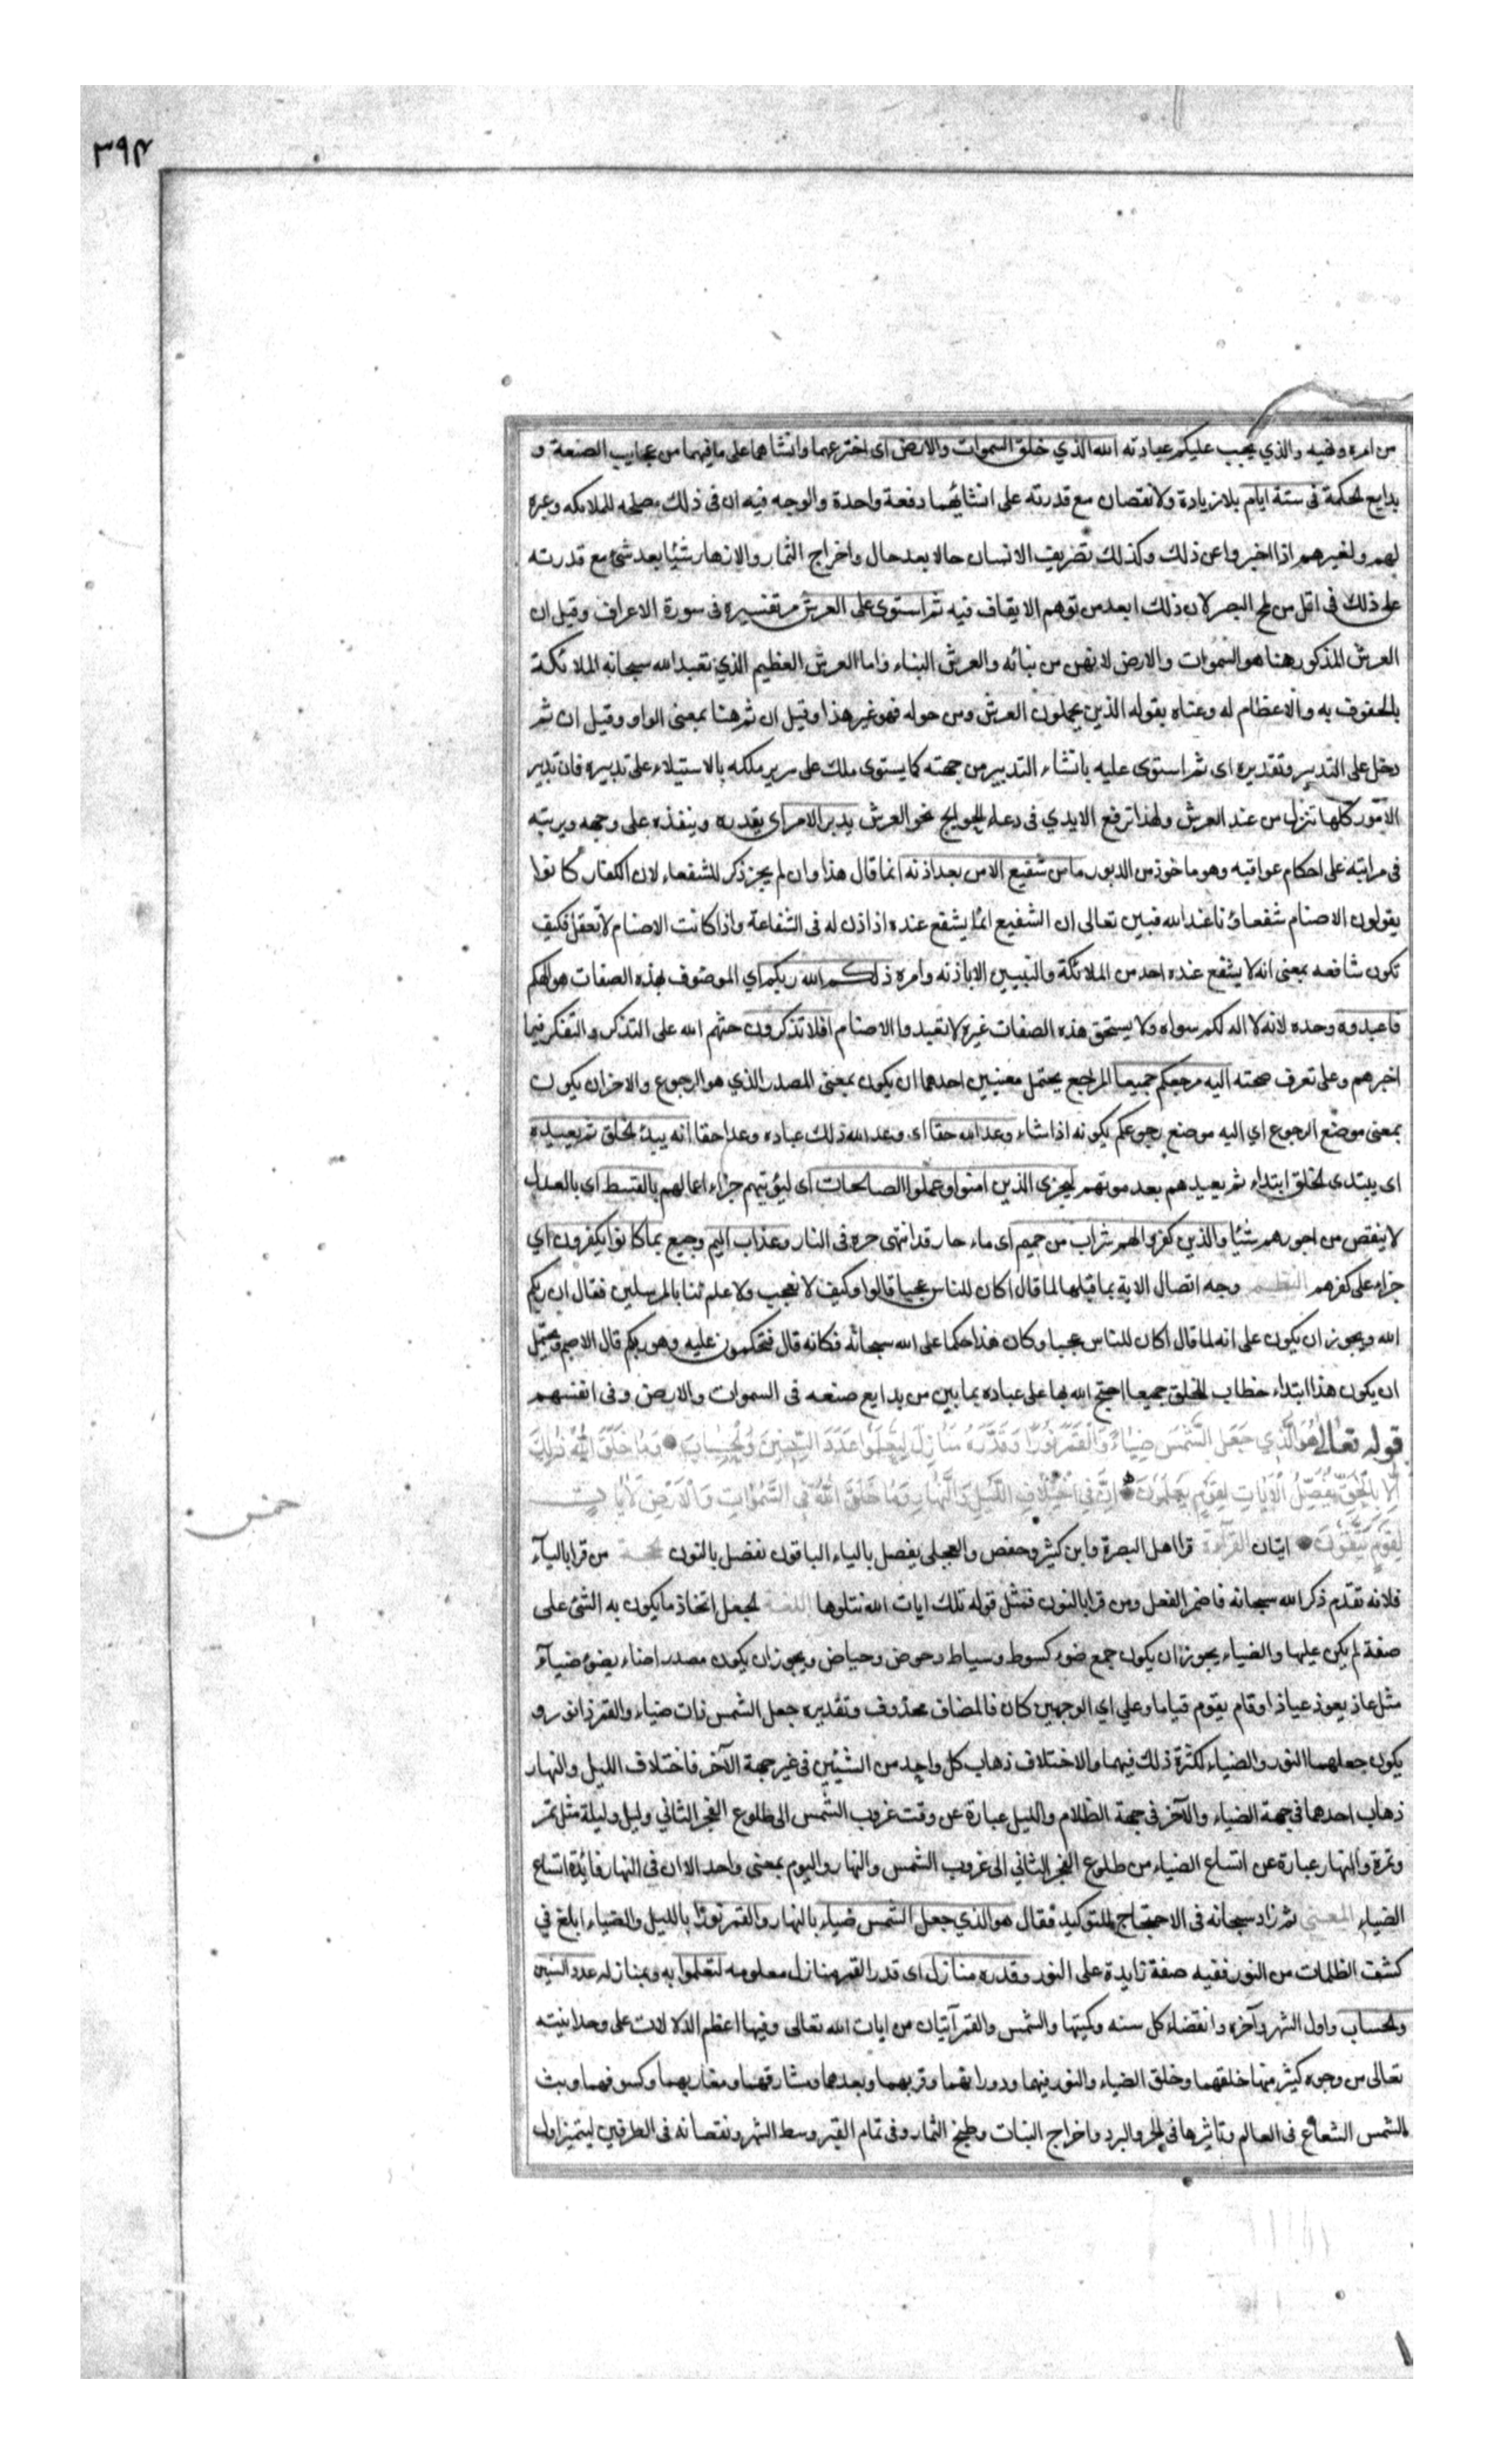 ٣٩٤
من امره ونهيه والذي يجب عليكم عبادته الله الذي خلق السموات والارض اى اخترعهما وانشاهما على ما فيهما من عجايب الصنعة و
بدايع الحكمة فى ستة ايام بلا زيادة ولا نقصان مع قدرته على انشائهما دفعة واحدة والوجه فيه ان فى ذلك مصلحه للملائكه وعبره
لهم ولغيرهم اذا اخبروا عن ذلك وكذلك تصريف الانسان حالا بعد حال واخراج الثمار والازهار شيئا بعد شئ مع قدرته
على ذلك فى اقل من لمح البصر لان ذلك ابعد من توهم الايقاف فيه ثم استوى على العرش مر تفسيره فى سورة الاعراف وقيل ان
العرش المذكور هنا هو السموات والارض لانهن من بنائه والعرش البناء واما العرش العظيم الذي تعبد الله سبحانه الملائكة
بالحفوف به والاعظام له وعناه بقوله الذين يحملون العرش ومن حوله فهو غير هذا وقيل ان ثم هنا بمعنى الواو وقيل ان ثم
دخل على التدبير وتقديره اى ثم استوى عليه بانشاء التدبير من جهته كما يستوى ملك على سرير ملكه بالاستيلاء على تدبيره فان تدبير
الامور كلها تنزل من عند العرش ولهذا ترفع الايدي فى دعاء الحوايج نحو العرش يدبر الامر اى يقدره وينفذه على وجهه ويرتبه
فى مراتبه على احكام عواقبه وهو ماخوذ من الدبور ما من شفيع الا من بعد اذنه انما قال هذا وان لم يجر ذكر للشفعاء لان الكفار كانوا
يقولون الاصنام شفعاؤنا عند الله فبين تعالى ان الشفيع انما يشفع عنده اذا اذن له فى الشفاعة واذا كانت الاصنام لا تعقل فكيف
تكون شافعه بمعنى انه لا يشفع عنده احد من الملائكة والنبيين الا باذنه وامره ذلكم الله ربكم اي الموصوف بهذه الصفات هو الهكم
فاعبدوه وحده لانه لا اله لكم سواه ولا يستحق هذه الصفات غيره لا تعبدوا الاصنام افلا تذكرون حثهم الله على التذكر والتفكر فيما
اخبرهم وعلى تعرف صحته اليه مرجعكم جميعا المرجع يحتمل معنيين احدهما ان يكون بمعنى المصدر الذي هو الرجوع والاخر ان يكون
بمعنى موضع الرجوع اي اليه موضع رجوعكم يكونه اذا شاء وعد الله حقا اى وعد الله ذلك عباده وعدا حقا انه يبدؤ الخلق ثم يعيده
اى يبتدى الخلق ابتداء ثم يعيدهم بعد موتهم ليجزى الذين امنوا وعملوا الصالحات اى ليؤتيهم جزاء اعمالهم بالقسط اى بالعدل
لا ينقص من اجورهم شيئا والذين كفروا لهم شراب من حميم اى ماء حار قد انتهى حره فى النار وعذاب اليم وجيع بما كانوا يكفرون اي
جزاء على كفرهم النظم وجه اتصال الاية بما قبلها لما قال اكان للناس عجبا قالوا وكيف لا نعجب ولا علم لنا بالمرسلين فقال ان ربكم
الله ويجوز ان يكون على انه لما قال اكان للناس عجبا وكان هذا حكما على الله سبحانه فكانه قال فتحكمون عليه وهو ربكم قال الاصم ويحتمل
ان يكون هذا ابتداء خطاب للخلق جميعا احتج الله بها على عباده بما بين من بدايع صنعه فى السموات والارض وفى انفسهم
قوله تعالى هُوَ الَّذِي جَعَلَ الشَّمْسَ ضِيَاءً وَالْقَمَرَ نُورًا وَقَدَّرَهُ مَنَازِلَ لِتَعْلَمُوا عَدَدَ السِّنِينَ وَالْحِسَابَ وَمَا خَلَقَ اللَّهُ ذَلِكَ
اِلَّا بِالْحَقِّ يُفَصِّلُ الْآيَاتِ لِقَوْمٍ يَعْلَمُونَ اِنَّ فِي اخْتِلَافِ اللَّيْلِ وَالنَّهَارِ وَمَا خَلَقَ اللَّهُ فِي السَّمٰوَاتِ وَالْاَرْضِ لَاٰيَاتٍ
لِقَوْمٍ يَتَّقُونَ ايتان القرآءة قرا اهل البصرة وابن كثير وحفص والعجلى يفصل بالياء الباقون نفصل بالنون الحجة من قرا بالياء
فلانه تقدم ذكر الله سبحانه فاضمر الفعل ومن قرا بالنون فمثل قوله تلك ايات الله نتلوها اللغة الجعل اتخاذ ما يكون به الشئ على
صفة لم يكن عليها والضياء يجوز ان يكون جمع ضوء كسوط وسياط وحوض وحياض ويجوز ان يكون مصدر اضاء يضئ ضياء
مثل عاذ يعوذ عياذا وقام يقوم قياما وعلى اي الوجهين كان فالمضاف محذوف وتقديره جعل الشمس ذات ضياء والقمر ذا نور و
يكون جعلهما النور والضياء لكثرة ذلك فيهما والاختلاف ذهاب كل واحد من الشيئين فى غير جهة الآخر فاختلاف الليل والنهار
ذهاب احدهما فى جهة الضياء والآخر فى جهة الظلام والليل عبارة عن وقت غروب الشمس الى طلوع الفجر الثاني وليل وليلة مثل تمر
وتمرة والنهار عبارة عن اتساع الضياء من طلوع الفجر الثاني الى غروب الشمس والنهار واليوم بمعنى واحد الا ان فى النهار فائدة اتساع
الضياء المعنى ثم زاد سبحانه فى الاحتجاج للتوكيد فقال هو الذي جعل الشمس ضياء بالنهار والقمر نورا بالليل والضياء ابلغ في
كشف الظلمات من النور ففيه صفة زايدة على النور وقدره منازل اى قدر القمر منازل معلومه لتعلموا به وبمنازله عدد السنين
والحساب واول الشهر وآخره وانقضاء كل سنه وكميتها والشمس والقمر آيتان من ايات الله تعالى وفيها اعظم الدلالات على وحدانيته
تعالى من وجوه كثيرة منها خلقهما وخلق الضياء والنور فيهما ودورانهما وقربهما وبعدهما ومشارقهما ومغاربهما وكسوفهما وبث
الشمس الشعاع فى العالم وتاثيرها فى الحر والبرد واخراج النبات وطبخ الثمار وفى تمام القمر وسط الشهر ونقصانه فى الطرفين ليتميز اول